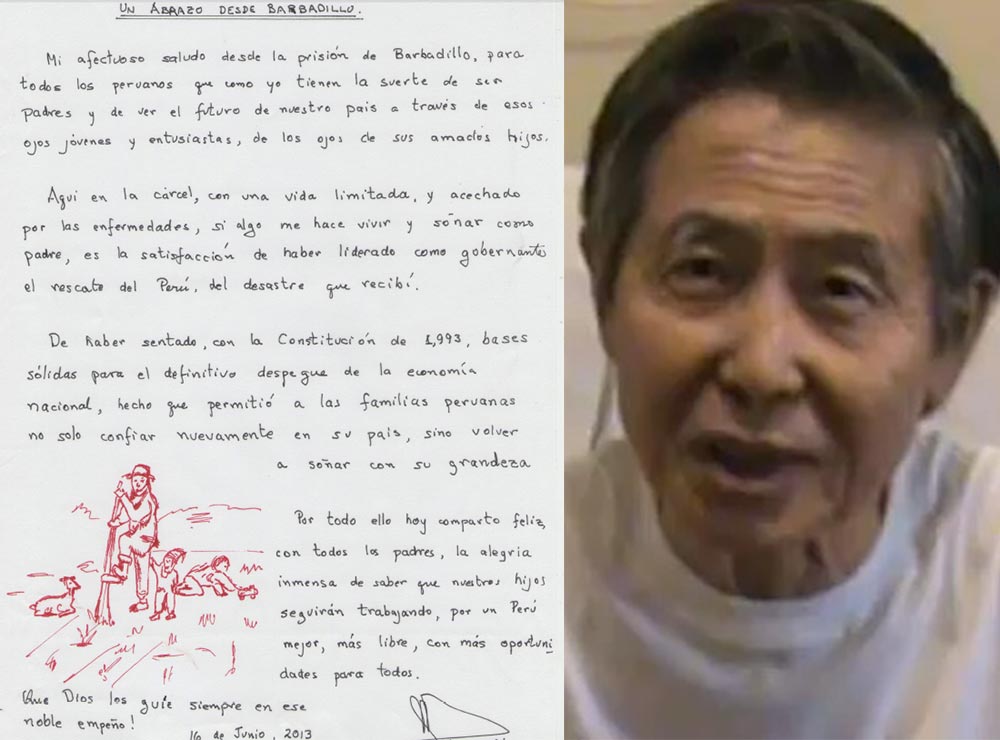 UN ABRAZO DESDE BARBADILLO.
Mi afectuoso saludo desde la prisión de Barbadillo, para
todos los peruanos que como yo tienen la suerte de ser
padres y de ver el futuro de nuestro pais a través de esos
ojos jóvenes y entusiastas, de los ojos de sus amados hijos.
Aquí en la cárcel, con una vida limitada, y acechado
por las enfermedades, si algo me hace vivir y soñar como
padre, es la satisfacción de haber liderado como gobernante
el rescate del Perú, del desastre que recibí.
De haber sentado, con la Constitución de 1,993, bases
sólidas para el definitivo despegue de la economía
nacional, hecho que permitió a las familias peruanas
no solo confiar nuevamente en su pais, sino volver
a soñar con su grandeza
Por todo ello hoy comparto feliz,
con todos los padres, la alegria
inmensa de saber que nuestros hijos
seguirán trabajando, por un Perú
mejor, más libre, con más oportuni
dades para todos.
Que Dios los guíe siempre en ese
noble empeño!
16 de Junio, 2013